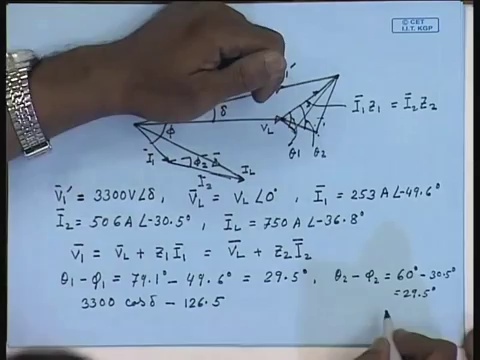 © CET
I.I.T. KGP
V₁′
δ
Ī₁Z₁ = Ī₂Z₂
V_L
φ
Ī₁
φ₂
Ī₂
I_L
θ₁ θ₂
V̄₁′ = 3300V∠δ, V̄_L = V_L∠0°, Ī₁ = 253A∠-49.6°
Ī₂ = 506A∠-30.5°, Ī_L = 750A∠-36.8°
V̄₁ = V̄_L + Z₁Ī₁ = V̄_L + Z₂Ī₂
θ₁-φ₁ = 79.1° - 49.6° = 29.5°, θ₂-φ₂ = 60° - 30.5°
= 29.5°
3300 cosδ - 126.5